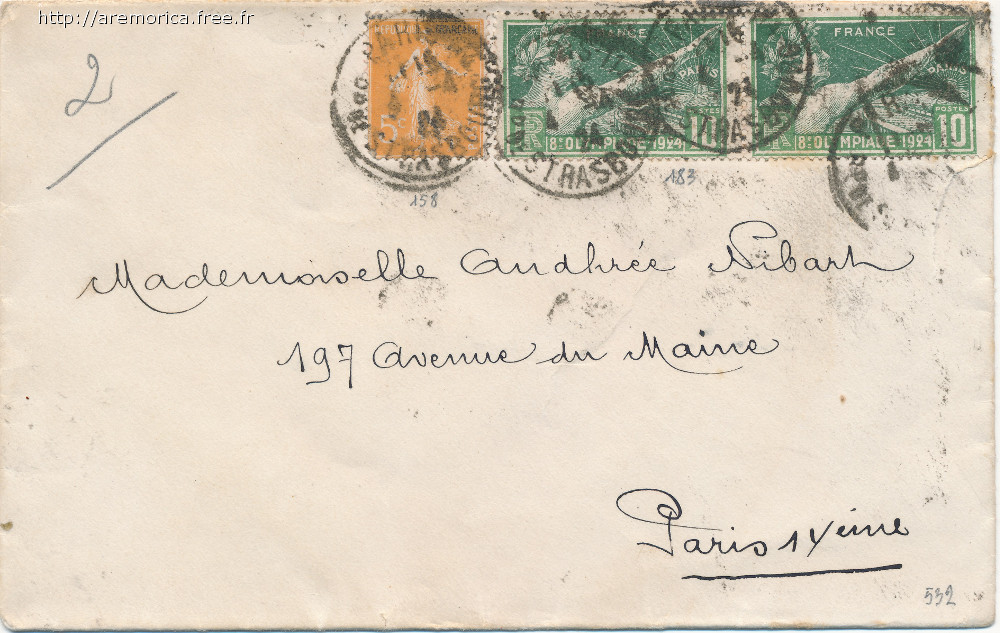 http://aremorica.free.fr
2
REPUBLIQUE FRANÇAISE
5c
FRANCE
PARIS
POSTES
8E OLYMPIADE 1924
10
FRANCE
PARIS
POSTES
8E OLYMPIADE 1924
10
STRASBOURG
24
158
183
Mademoiselle Andhrée Nibart
197 Avenue du Maine
Paris 14eine
532